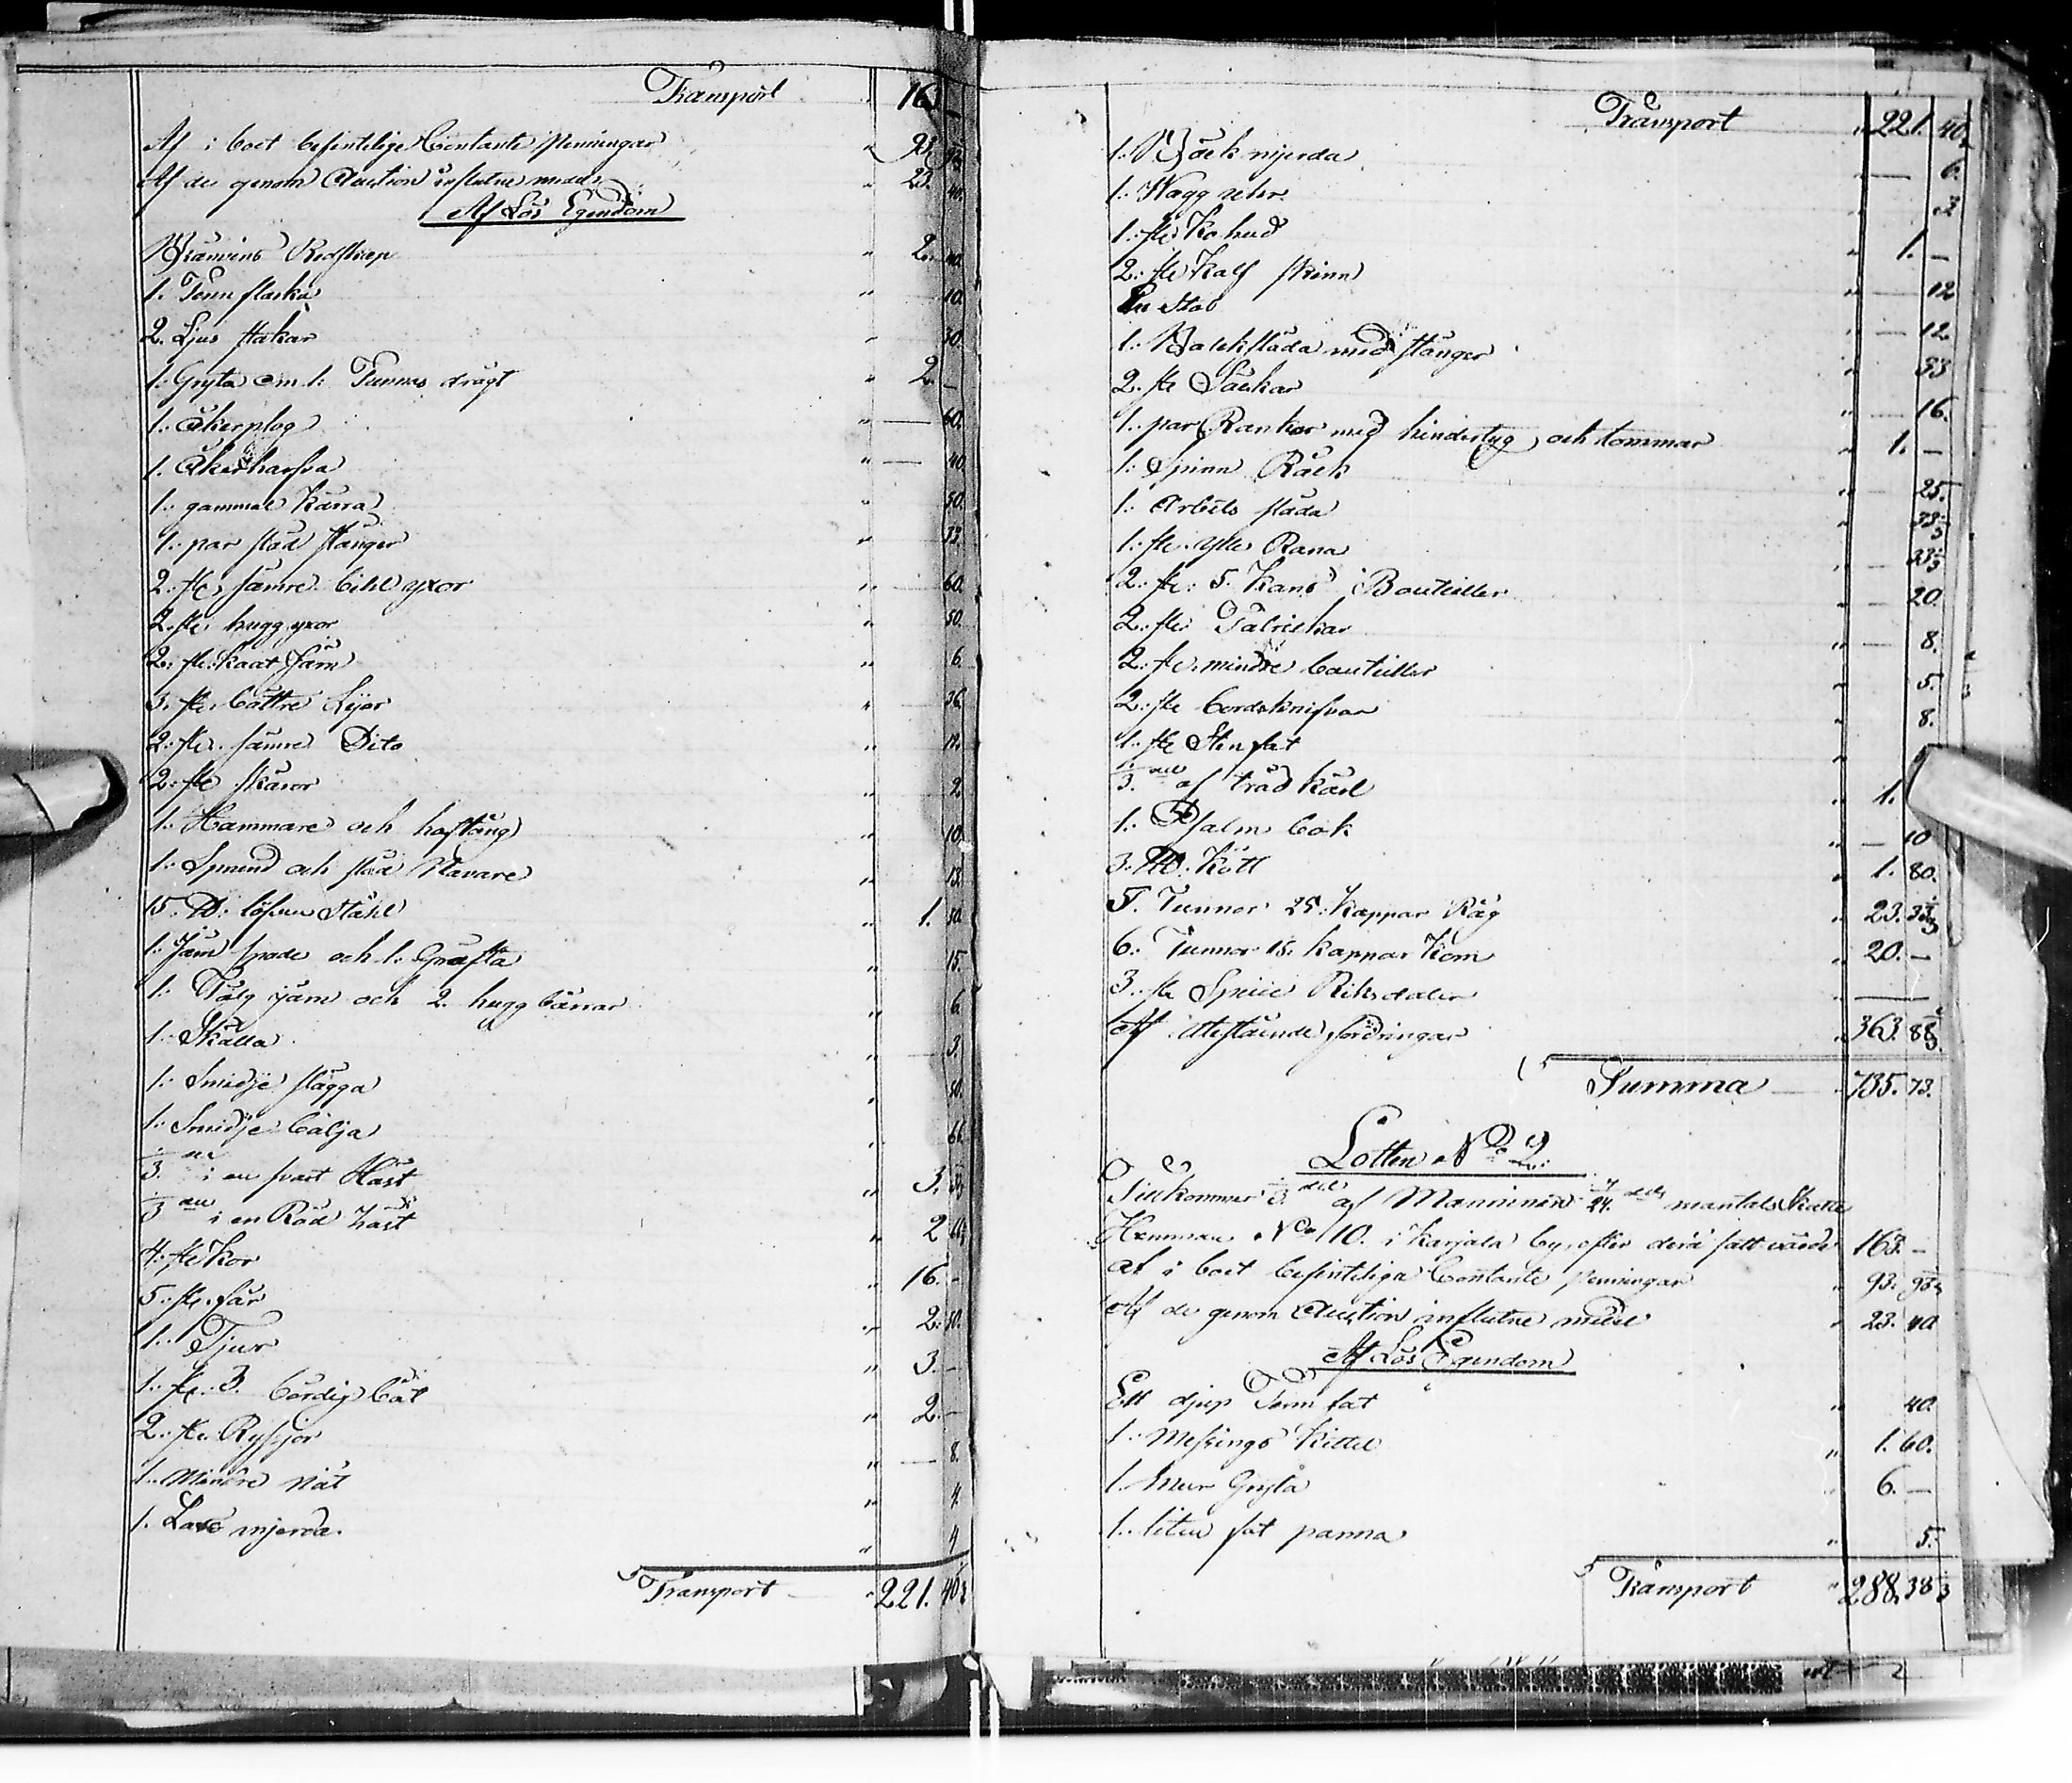 Transport 163. —
Af i boet befintelige Contante penningar " 93. 93 1/3
Af de genom Auction influtne medel " 23. 40.
Af Lös Egendom
Bränvins Redskap " 2. 40.
1. Tenn flaska " 10.
2. Ljus stakar " 30.
1: Gryta om 1: Tunnas drägt " 2. —
1. åkerplog " — 60.
1. åkerharfva " — 40.
1: gammal Kärra " 50.
1: par släd stänger " 33.
2: ste sämre bihl yxor " 60.
2. ste hugg yxor " 50.
2: ste: Kaat Järn " 6.
3. ste. bättre Lijor " 36.
2: ste. sämre Dito " 12.
2: ste skäror " 2.
1: Hammare och hoftång " 10.
1: Spmund och släd Navare " 13.
15. ℔: löfven Ståhl " 1. 50.
1: Järn spade och 1: Gräfta " 15.
1: Tälg järn och 2. hugg bärrar " 6.
1: Skälla " 3.
1: Smidje slägga " 50.
1: Smidje bälja " 66
1/3 i en svart Häst " 3. 33
1/3 i en Röd häst " 2 66
4: ste Kor " 16. —
5: ste. får " 2. 50.
1: Tjur " 3. —
1: ste: 3. bördig båt " 2. —
2. ste. Ryssjor " — 8.
1: Mindre nät " 4.
1. Lake mjerda. " 4
Transport " 221. 40 2/3
Transport " 221. 40 2/3
1: Bäck mjerda " — 6.
1: Wagg " 3
1: ste Ko hud " 1. —
2: ste Kalf skinn " — 12
En Stab " — 12.
1: Balck släda med stänger " 33
2. ste Säckar " — 16.
1. par Rankor med hindertyg och tommar " 1. —
1: Spinn Råck " — 25.
1: Arbets släda " 33 1/3
1: ste. ylle Rana " — 33 1/3
2: ste: 5. Kans Bouteiller " — 20.
2: ste: Talrickar " — 8.
2: ste. mindre bouteiller " 5.
2: ste bordsknifvar " 8.
1: ste Stenfat "
1/3 del af träd kärl " 1.
1: Psalm bok " — 10
3. ℔: Kött " 1. 80.
5. Tunnor 25: Kappar Råg " 23. 33 1/3
6: Tunnor 15. kappar Korn " 20. —
3. ste Specie Riksdaler " —
Af utestående fordringar " 363. 88
Summa " 735. 73.
Lotten No 2:
Tillkommer 1/3 del af Manninen 7/24. dels mantals Skatte
Hemman No 10. i Karjala by, efter derå satt värde 163. —
Af i boet befinteliga Contante penningar " 93. 93 1/3
Af de genom Auction influtne medel " 23. 40
Af Lös Egendom
Ett djup Tenn fat " 40.
1: Messings Kittel " 1. 60.
1. Mur Gryta " 6. —
1. liten fot panna " 5.
Transport " 288. 38 1/3